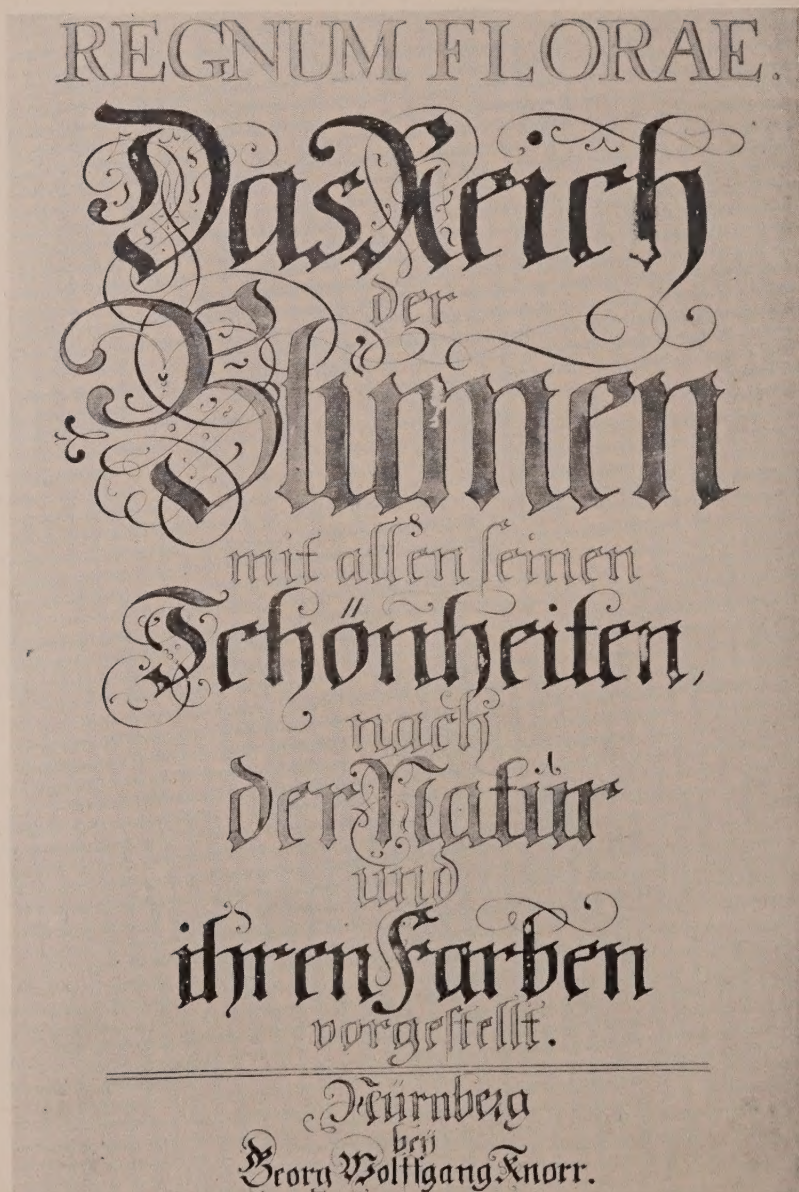 REGNUM FLORAE.
Das Reich
der
Blumen
mit allen seinen
Schönheiten,
nach
der Natur
und
ihren Farben
vorgestellt.
Nürnberg
beÿ
Georg Wolffgang Knorr.